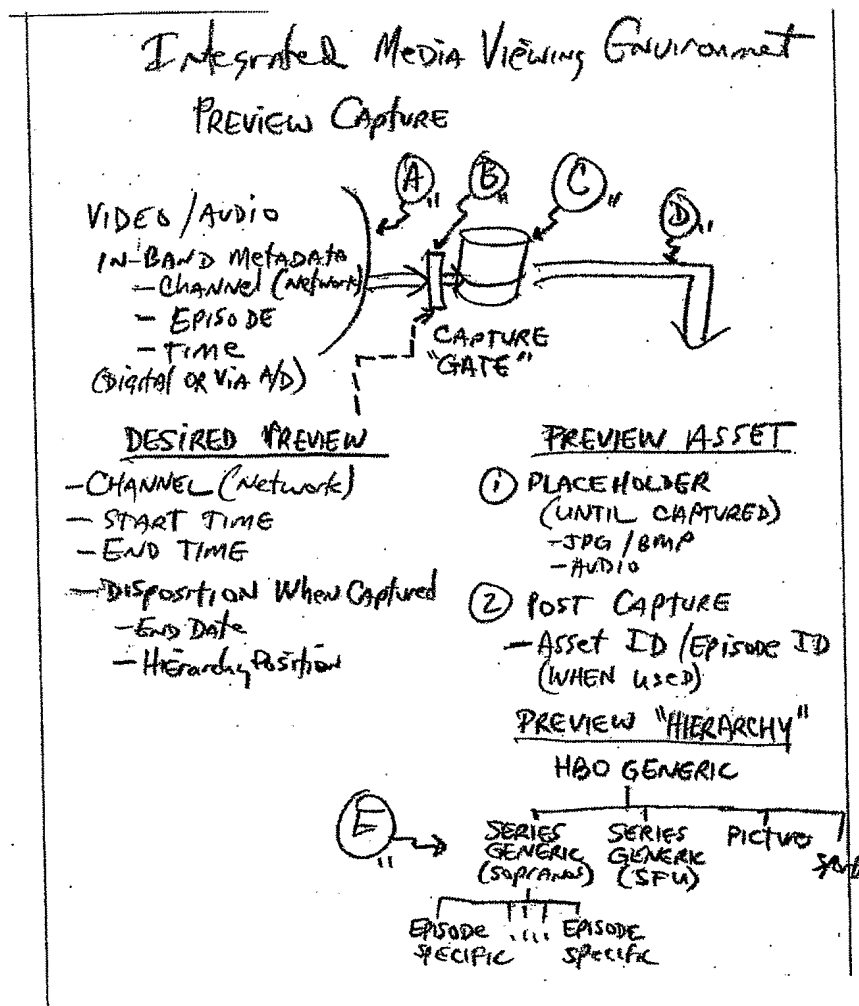 Integrated Media Viewing Environment
PREVIEW CAPTURE
A"
B"
C"
D"
VIDEO / AUDIO
IN-BAND METADATA
- CHANNEL (Network)
- EPISODE
- TIME
(Digital OR VIA A/D)
CAPTURE
"GATE"
DESIRED PREVIEW
- CHANNEL (Network)
- START TIME
- END TIME
- Disposition When Captured
- End Date
- Hierarchy Position
PREVIEW ASSET
1 PLACEHOLDER
(UNTIL CAPTURED)
- JPG / BMP
- AUDIO
2 POST CAPTURE
- Asset ID / Episode ID
(WHEN USED)
PREVIEW "HIERARCHY"
HBO GENERIC
E"
SERIES
GENERIC
(SOPRANOS)
SERIES
GENERIC
(SFU)
PICTURES
EPISODE
SPECIFIC
....
EPISODE
SPECIFIC